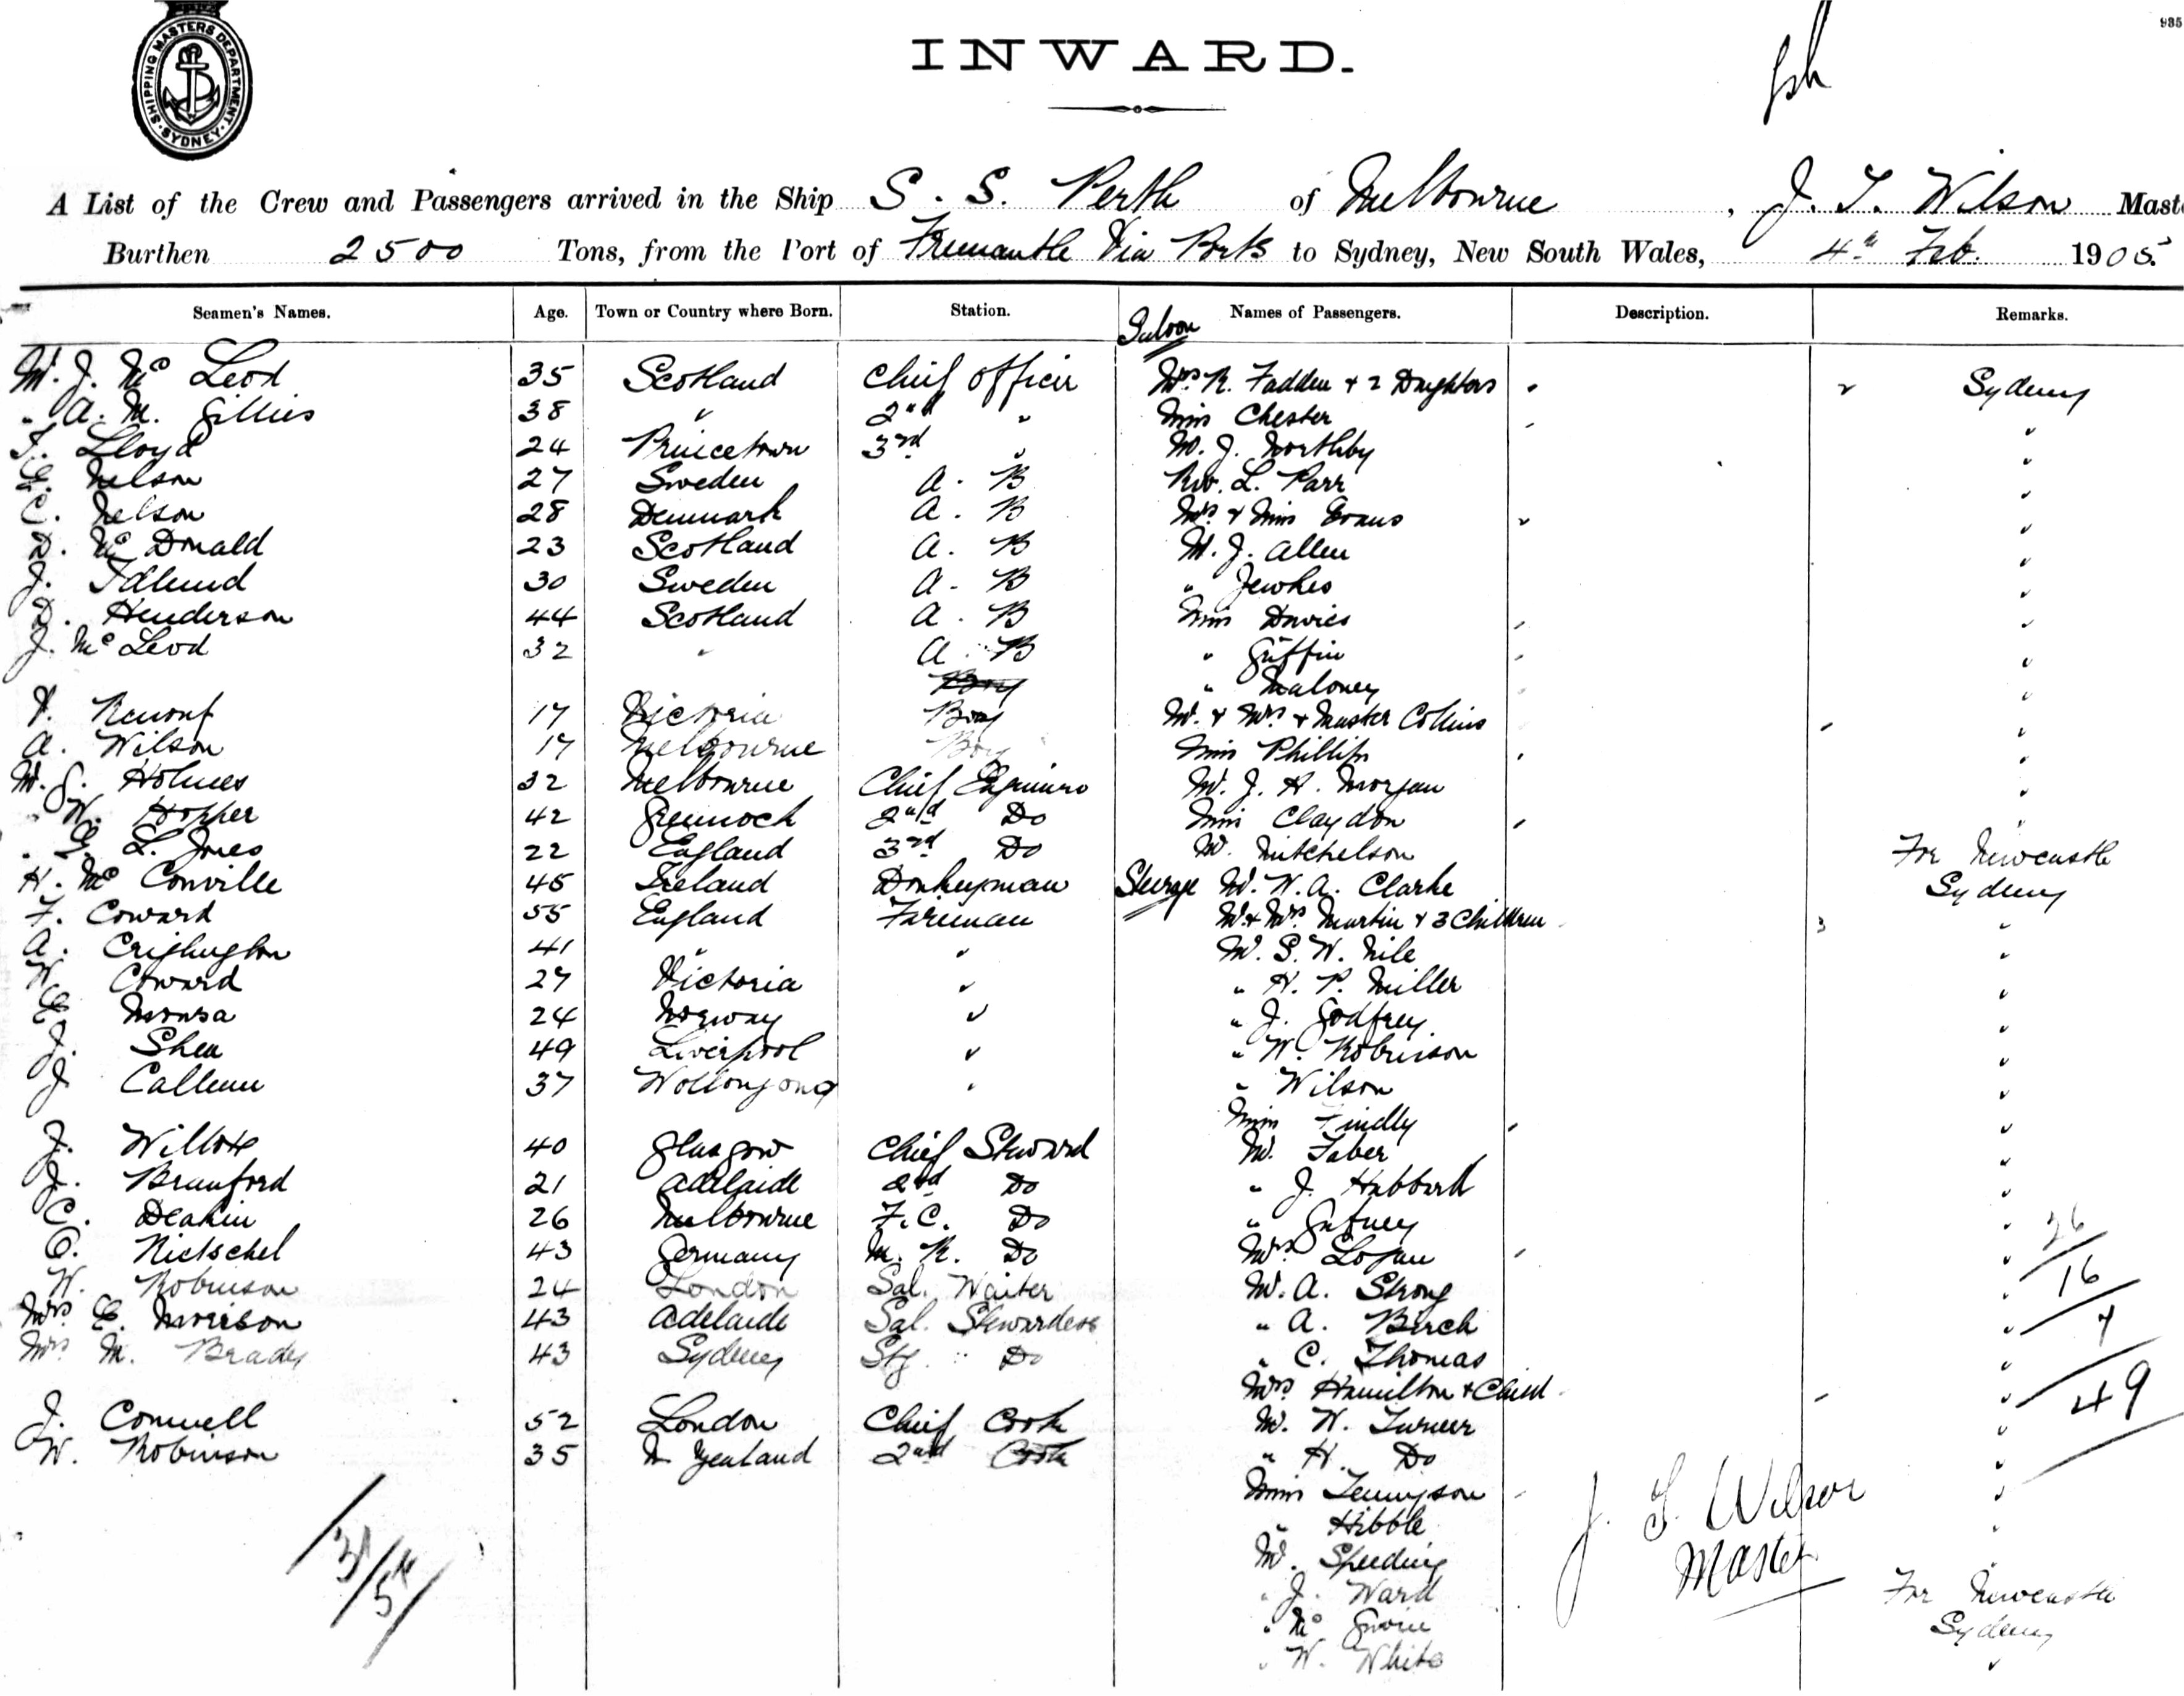 935
SHIPPING MASTERS DEPARTMENT · SYDNEY ·
INWARD.
A List of the Crew and Passengers arrived in the Ship S. S. Perth of Melbourne, J. T. Wilson Maste
Burthen 2500 Tons, from the Port of Fremantle Via Ports to Sydney, New South Wales, 4th Feb. 1905.
Seamen's Names. Age. Town or Country where Born. Station. Names of Passengers. Description. Remarks.
Saloon
M. J. Mc Leod 35 Scotland Chief Officer Mrs R. Fadden + 2 Daughters Sydney
" A. M. Gillies 38 " 2nd " Miss Chester "
T. Lloyd 24 Princetown 3rd " Mr. J. Northby "
E. Nelson 27 Sweden A. B Rev. L. Parr "
C. Nelson 28 Denmark A. B Mrs + Miss Evans "
D. Mc Donald 23 Scotland A. B Mr. J. Allen "
J. Idlund 30 Sweden A. B " Jewkes "
D. Henderson 44 Scotland A. B Miss Davies "
J. Mc Leod 32 " A. B " Griffin "
Boy " Maloney "
Renouf 17 Victoria Boy Mr. + Mrs + Master Collins "
A. Wilson 17 Melbourne Boy Miss Phillips "
Holmes 32 Melbourne Chief Engineer Mr. J. H. Morgan "
" W. Hopper 42 Greenock 2nd Do Miss Claydon "
L. Jones 22 England 3rd Do Mr. Mitchelson For Newcastle
H. Mc Conville 45 Ireland Donkeyman Steerage Mr. W. A. Clarke Sydney
F. Coward 55 England Fireman Mr + Mrs Martin + 3 Children "
A. Crighugton 41 " " Mr. S. W. Nile "
W. Coward 27 Victoria " " H. P. Miller "
E. Monsa 24 Norway " " J. Godfrey "
J. Shea 49 Liverpool " " W. Robinson "
J. Callum 37 Wollongong " " Wilson "
Miss Findly "
J. 40 Glasgow Chief Steward Mr. Faber "
J. Branford 21 Adelaide 2nd Do " J. Hubbard "
C. Deakin 26 Melbourne F. C. Do " Gafney " 26
O. Nietschel 43 Germany M. R. Do Mrs Logan "
W. Robinson 24 London Sal. Waiter Mr. A. Strong " 16
Mrs E. Morrison 43 Adelaide Sal. Stewardess " A. Birch " 7
Mrs M. Brady 43 Sydney Stg. " Do " C. Thomas "
Mrs Hamilton + Child " 49
J. Connell 52 London Chief Cook Mr. W. Turner "
W. Robinson 35 N Zealand 2nd Cook " H. Do "
Miss Tennyson "
" Hibble "
Mr. Speeding "
" J. Ward For Newcastle
" Mc Gwire Sydney
" W. White "
J. T. Wilson
Master
31/5